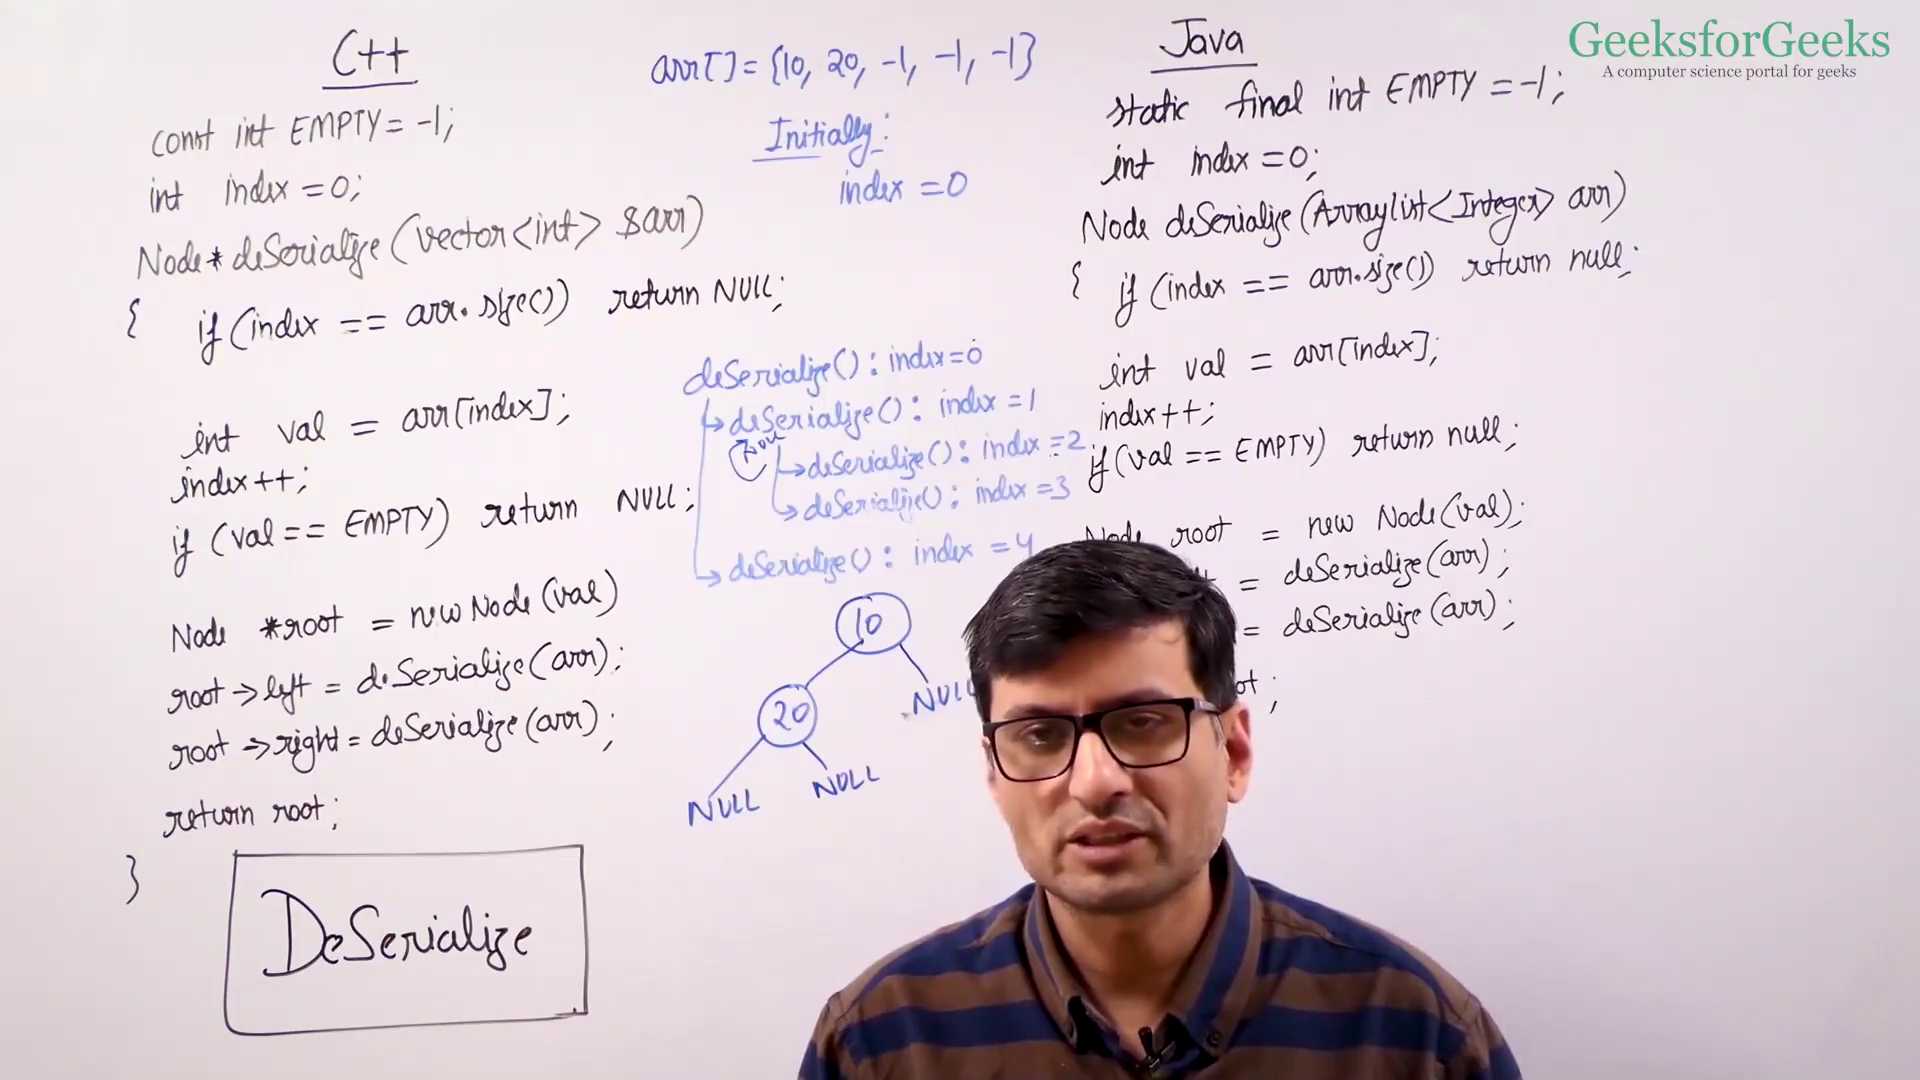 C++
const int EMPTY = -1;
int index = 0;
Node* deSerialize(vector<int> &arr)
{ if (index == arr.size()) return NULL;
int val = arr[index];
index++;
if (val == EMPTY) return NULL;
Node *root = new Node(val)
root->left = deSerialize(arr);
root->right = deSerialize(arr);
return root;
}
DeSerialize
arr[] = {10, 20, -1, -1, -1}
Initially:
index = 0
deSerialize(): index=0
deSerialize(): index=1
deSerialize(): index=2
deSerialize(): index=3
deSerialize(): index=4
10
20
NULL
NULL
NULL
Java
static final int EMPTY = -1;
int index = 0;
Node deSerialize(ArrayList<Integer> arr)
{ if (index == arr.size()) return null;
int val = arr[index];
index++;
if (val == EMPTY) return null;
Node root = new Node(val);
= deSerialize(arr);
= deSerialize(arr);
;
GeeksforGeeks
A computer science portal for geeks